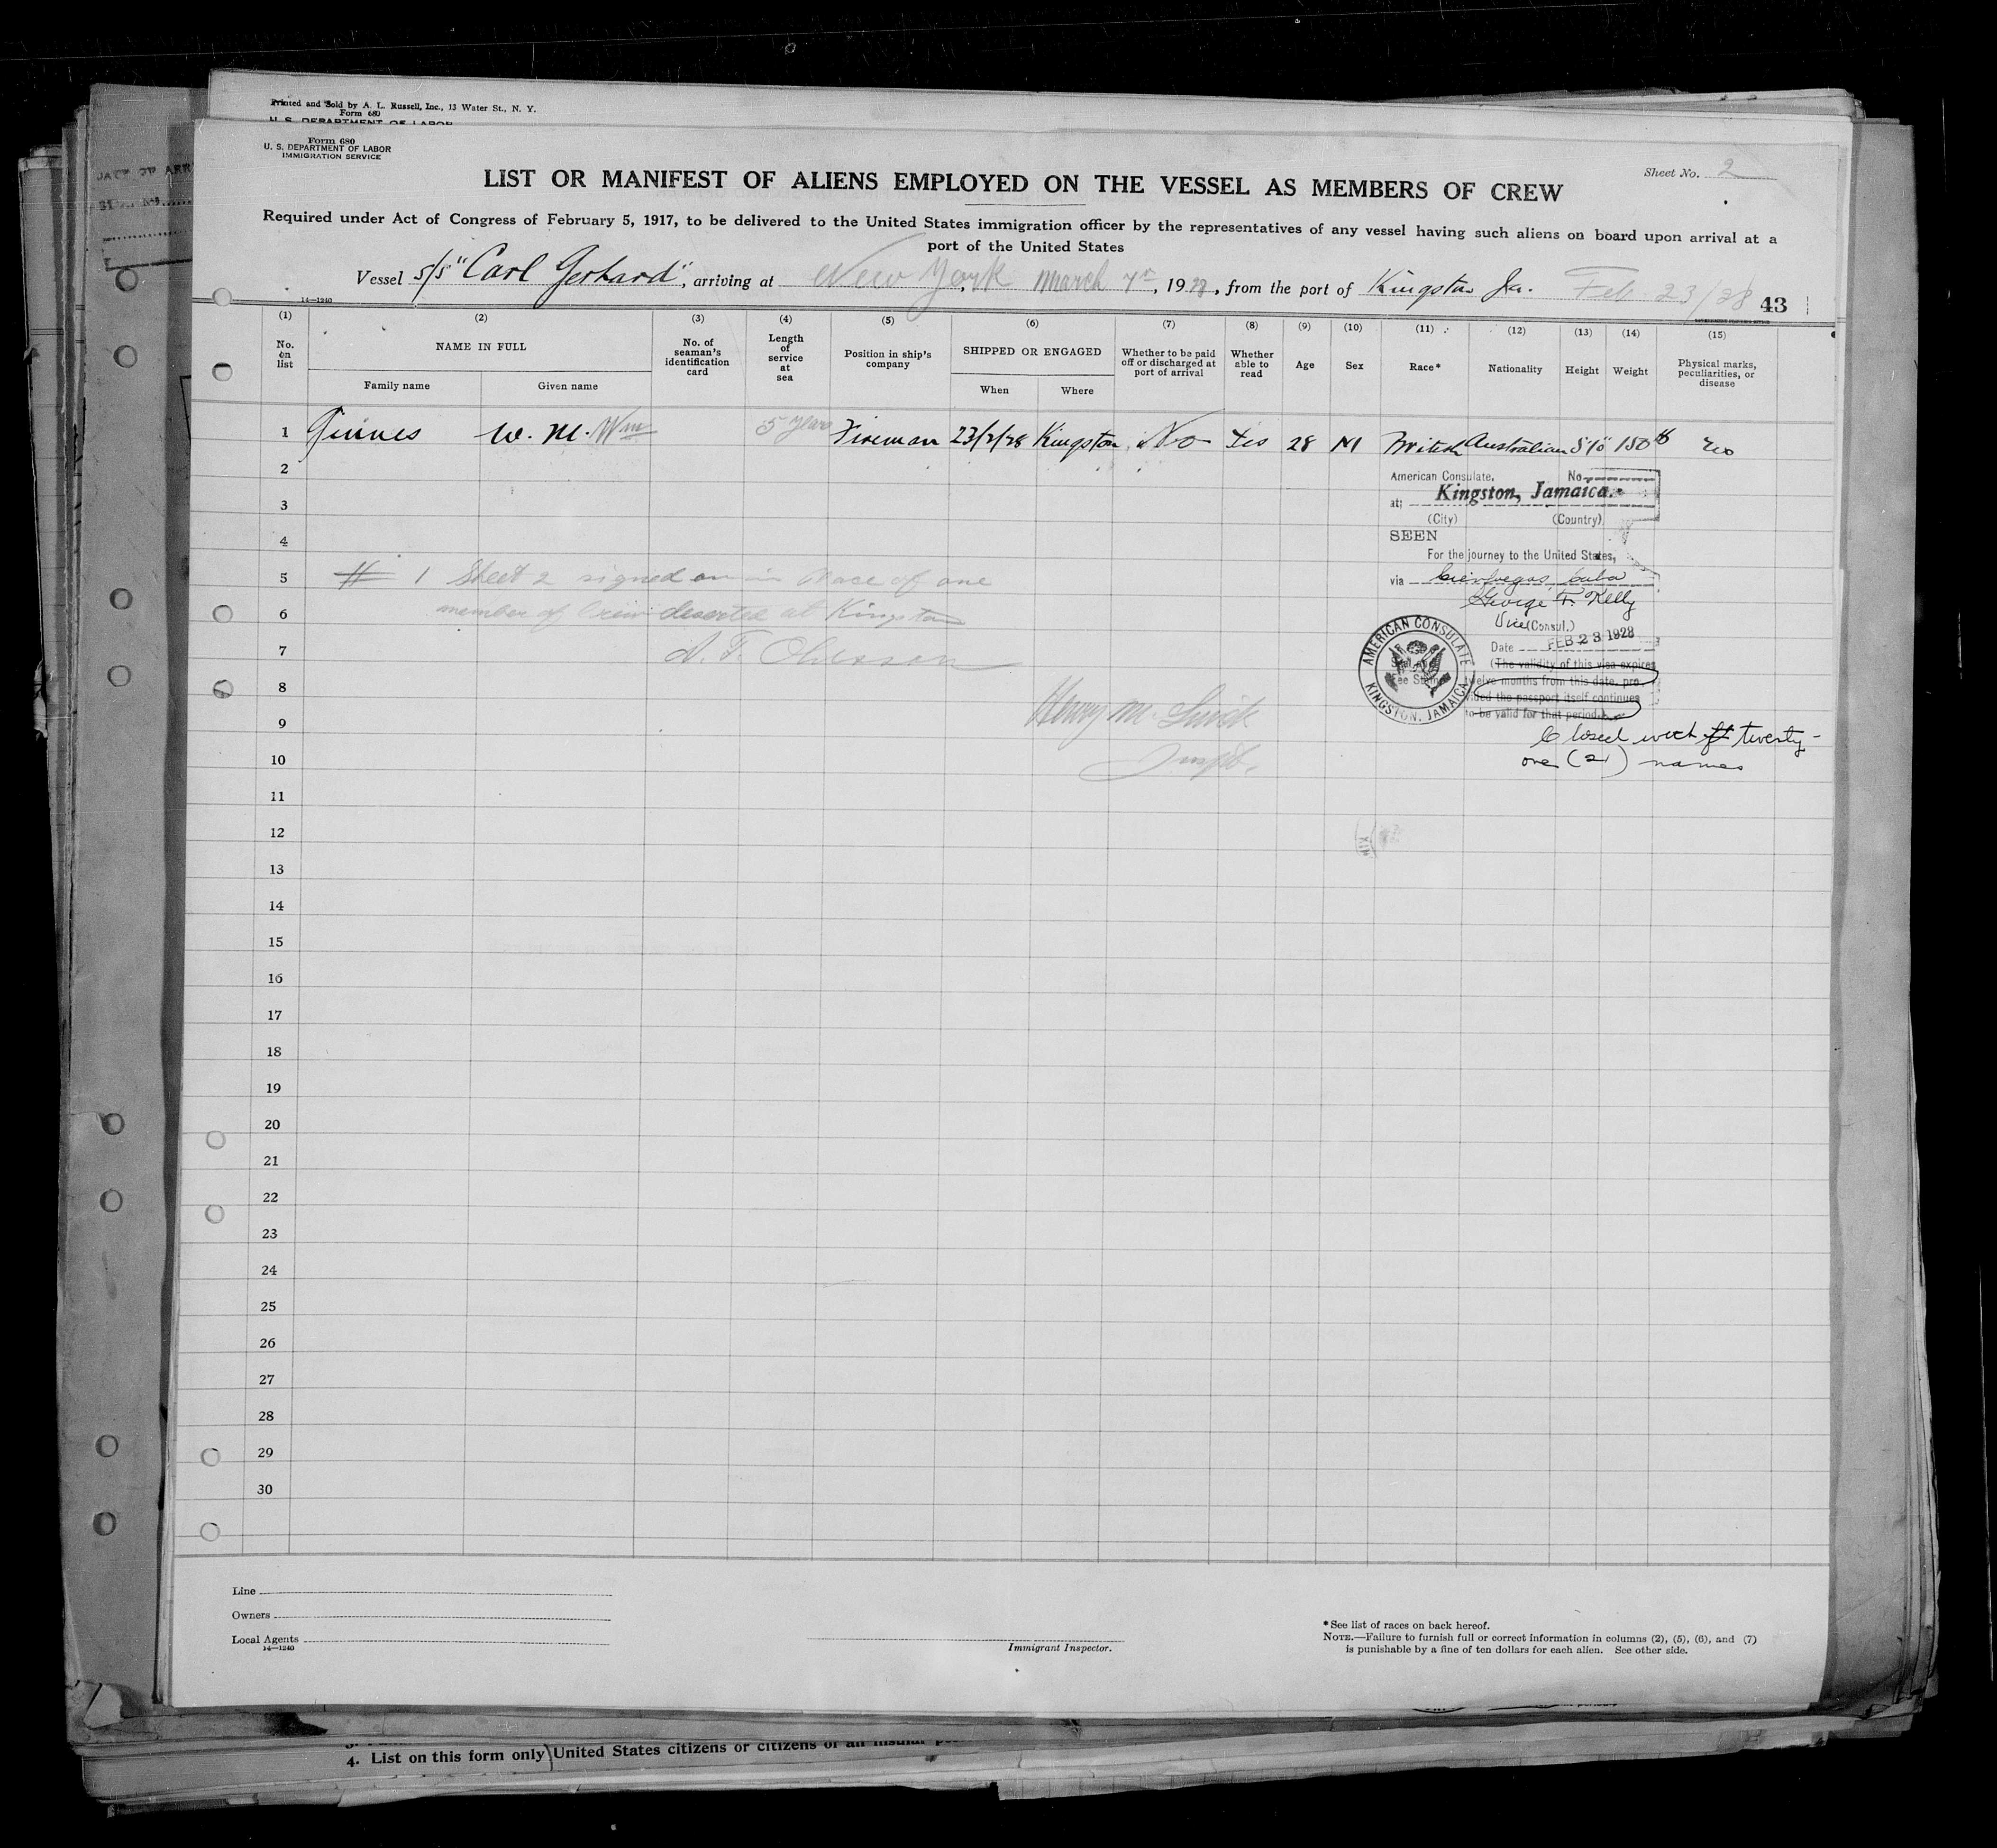 Printed and Sold by A. L. Russell, Inc., 13 Water St., N. Y.
Form 680
U. S. DEPARTMENT OF LABOR
Form 680
U. S. DEPARTMENT OF LABOR
IMMIGRATION SERVICE
Sheet No. 2
LIST OR MANIFEST OF ALIENS EMPLOYED ON THE VESSEL AS MEMBERS OF CREW
Required under Act of Congress of February 5, 1917, to be delivered to the United States immigration officer by the representatives of any vessel having such aliens on board upon arrival at a
port of the United States
Vessel S/S "Carl Gerhard", arriving at New York March 7th, 1928, from the port of Kingston Ja. Feb 23/28
14—1240
43
(1) (2) (3) (4) (5) (6) (7) (8) (9) (10) (11) (12) (13) (14) (15)
No. on list
NAME IN FULL
Family name
Given name
No. of seaman's identification card
Length of service at sea
Position in ship's company
SHIPPED OR ENGAGED
When
Where
Whether to be paid off or discharged at port of arrival
Whether able to read
Age
Sex
Race*
Nationality
Height
Weight
Physical marks, peculiarities, or disease
1 W. M. Wm 5 years Fireman 23/2/28 Kingston No Yes 28 M British Australian 5'10" 150# no
2
3
4
5
6
7
8
9
10
11
12
13
14
15
16
17
18
19
20
21
22
23
24
25
26
27
28
29
30
American Consulate, No
at: Kingston, Jamaica.
(City) (Country)
SEEN
For the journey to the United States,
via Cienfuegos, Cuba
George F. Kelly
Vice (Consul.)
Date FEB 23 1928
(The validity of this visa expires
twelve months from this date, pro-
vided the passport itself continues
to be valid for that period.)
AMERICAN CONSULATE
KINGSTON, JAMAICA
Closed with twenty-
one (21) names
# 1 Sheet 2 signed on in place of one
member of Crew deserted at Kingston
Henry M.
Line
Owners
Local Agents
14—1240
Immigrant Inspector.
*See list of races on back hereof.
NOTE.—Failure to furnish full or correct information in columns (2), (5), (6), and (7)
is punishable by a fine of ten dollars for each alien. See other side.
4. List on this form only United States citizens or citizens of an insular